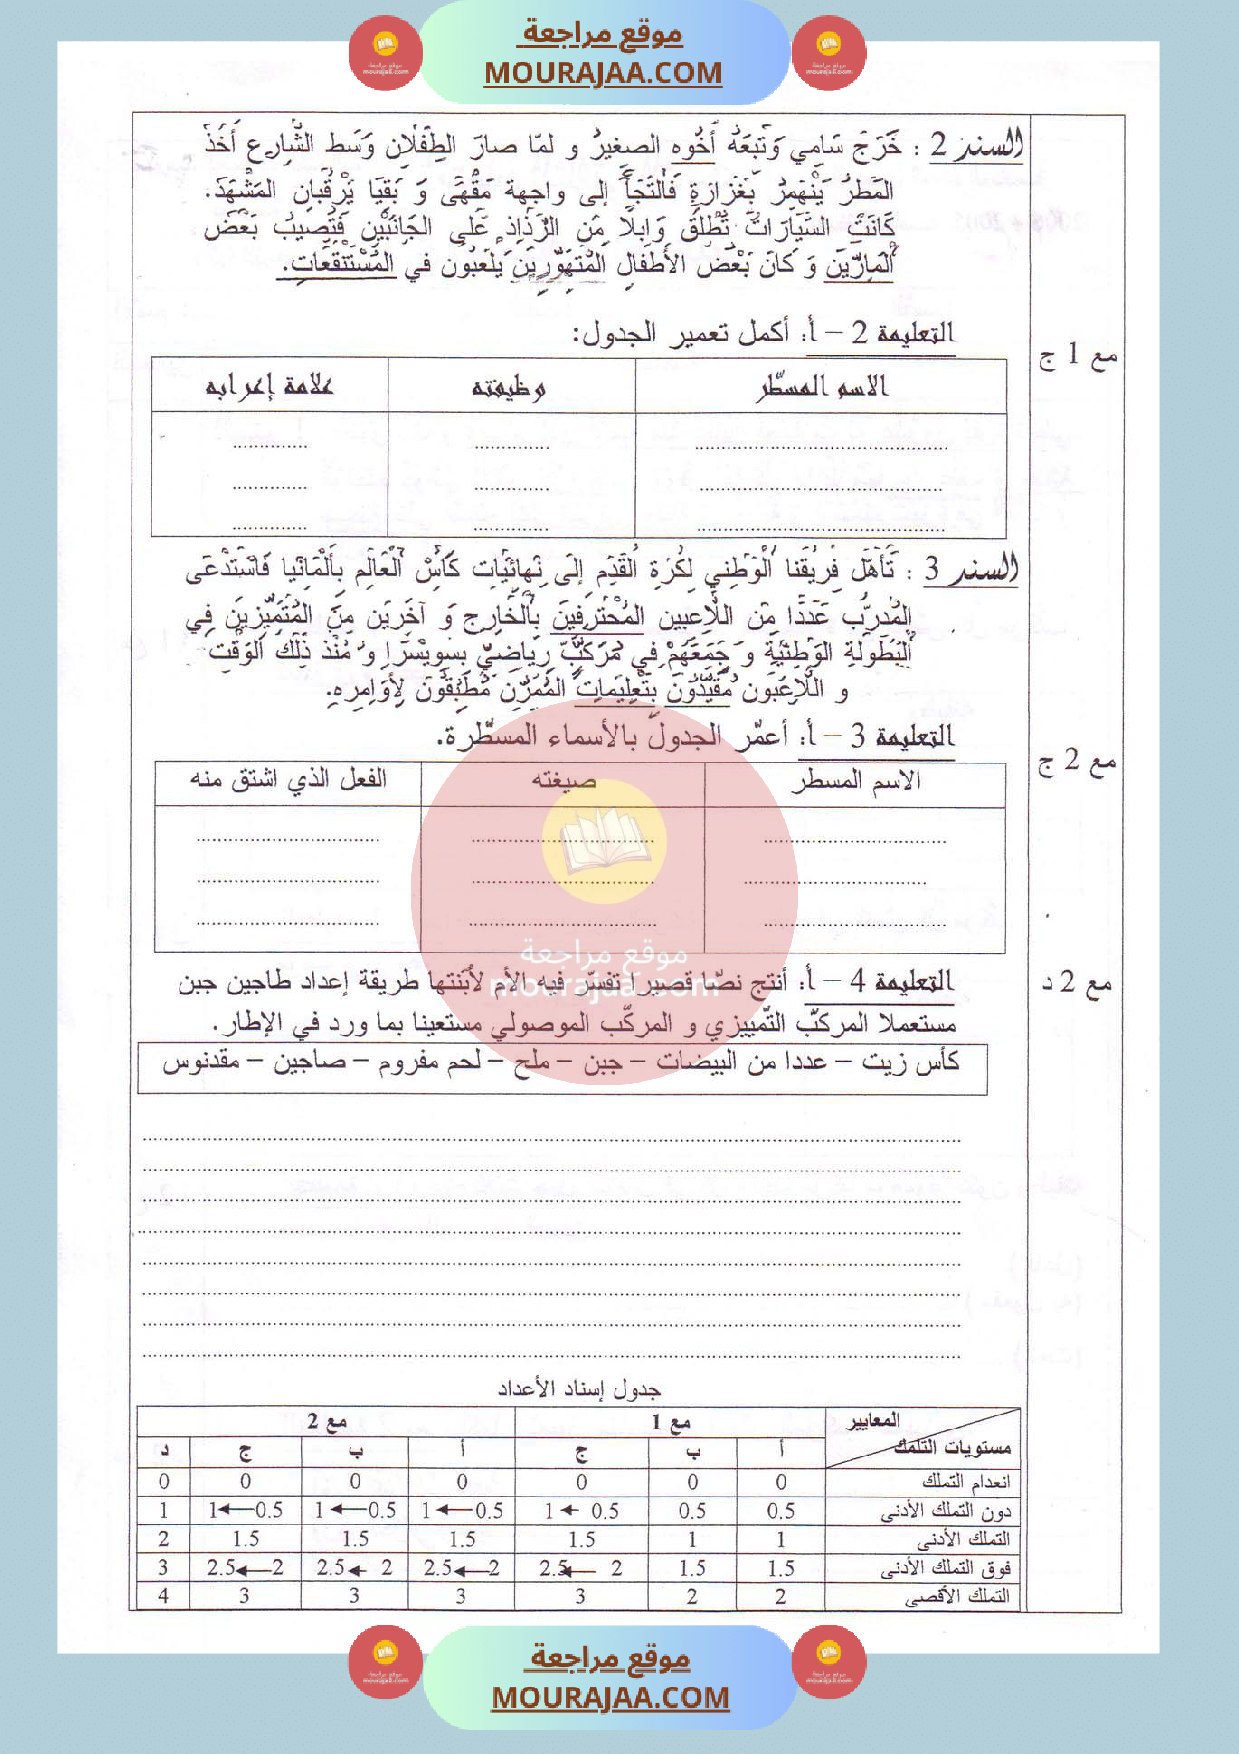 موقع مراجعة
MOURAJAA.COM
السند 2 : خَرَجَ سَامِي وَتَبِعَهُ أَخُوه الصغيرُ و لمّا صارَ الطِفْلَانِ وَسَط الشَّارِعِ أَخَذَ
المَطَرُ يَنْهَمِرُ بِغَزَارَةٍ فَالْتَجَأَ إلى واجهة مَقْهًى وَ بَقِيَا يَرْقُبَانِ المَشْهَدَ.
كَانَتْ السَّيَّارَاتُ تُطْلِقُ وَابِلًا مِنَ الرَّذَاذِ عَلَى الجَانِبَيْنِ فَتُصِيبُ بَعْضَ
الْمَارِّينَ وَ كَانَ بَعْضُ الأَطْفَالِ الْمُتَهَوِّرِينَ يَلْعَبُونَ في الْمُسْتَنْقَعَاتِ.
مع 1 ج
التعليمة 2 – أ: أكمل تعمير الجدول:
الاسم المسطّر وظيفته علامة إعرابه
السند 3 : تَأَهَّلَ فَرِيقُنَا الْوَطَنِي لِكُرَةِ الْقَدَمِ إِلَى نِهَائِيَّاتِ كَأْسِ الْعَالَمِ بِأَلْمَانْيَا فَاسْتَدْعَى
الْمُدَرِّبُ عَدَدًا مِنَ اللَّاعِبِينَ الْمُحْتَرِفِينَ بِالْخَارِجِ وَ آخَرِينَ مِنَ الْمُتَمَيِّزِينَ فِي
الْبُطُولَةِ الوَطَنِيَّةِ وَ جَمَعَهُمْ فِي مُرَكَّبٍ رِيَاضِيٍّ بِسِوِيسْرَا وَ مُنْذُ ذَلِكَ الوَقْتِ
و اللَّاعِبُونَ مُقَيَّدُونَ بِتَعْلِيمَاتِ الْمُمَرِّنِ مُطَبِّقُونَ لِأَوَامِرِهِ.
مع 2 ج
التعليمة 3 – أ: أعمّر الجدول بالأسماء المسطّرة.
الاسم المسطر صيغته الفعل الذي اشتق منه
موقع مراجعة
mourajaa.com
مع 2 د
التعليمة 4 – أ: أنتج نصّا قصيرا تفسّر فيه الأم لأبنتها طريقة إعداد طاجين جبن
مستعملا المركبّ التّمييزي و المركّب الموصولي مستعينا بما ورد في الإطار.
كأس زيت – عددا من البيضات – جبن – ملح – لحم مفروم – صاجين – مقدنوس
جدول إسناد الأعداد
المعايير مع 1 مع 2
مستويات التملك أ ب ج أ ب ج د
انعدام التملك 0 0 0 0 0 0 0
دون التملك الأدنى 0.5 0.5 0.5 ← 1 0.5 ← 1 0.5 ← 1 0.5 ← 1 1
التملك الأدنى 1 1 1.5 1.5 1.5 1.5 2
فوق التملك الأدنى 1.5 1.5 2 ← 2.5 2 ← 2.5 2 ← 2.5 2 ← 2.5 3
التملك الأقصى 2 2 3 3 3 3 4
موقع مراجعة
MOURAJAA.COM